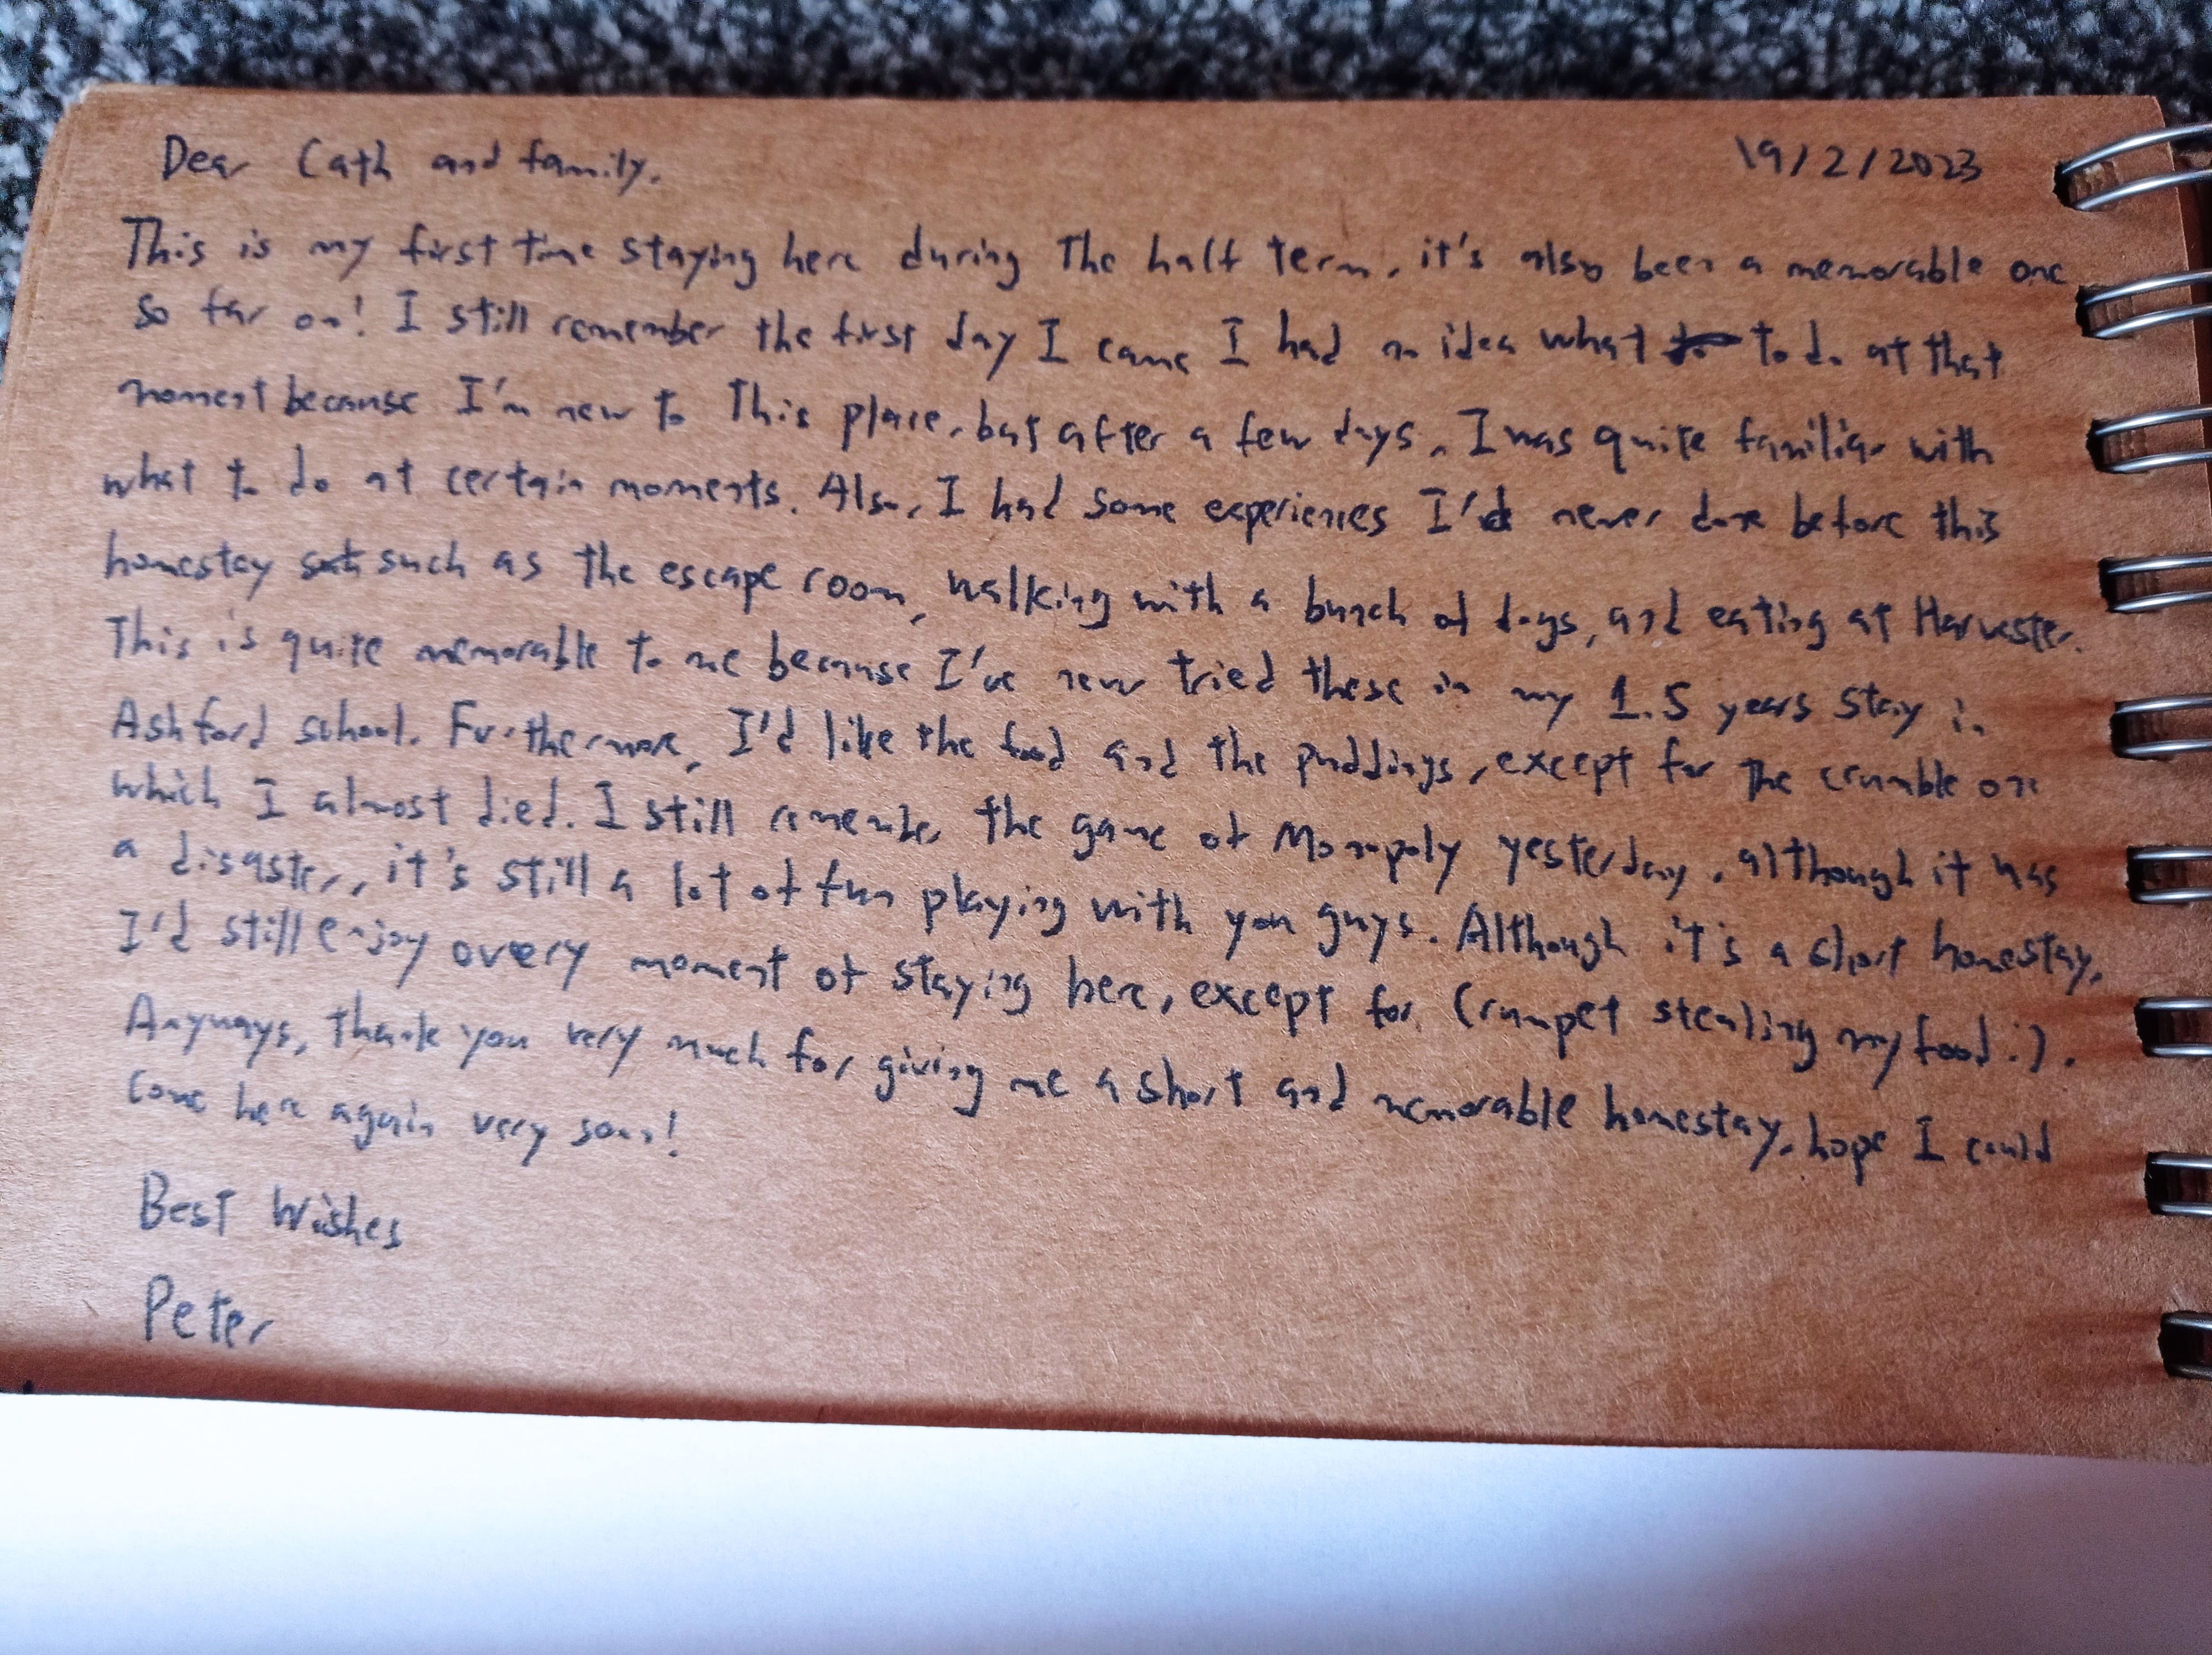 Dear Cath and family, 19/2/2023
This is my first time staying here during the half term, it's also been a memorable one
so far on! I still remember the first day I came I had no idea what to to do at that
moment because I'm new to this place, but after a few days, I was quite familiar with
what to do at certain moments. Also, I had some experiences I'd never done before this
homestay such as the escape room, walking with a bunch of dogs, and eating at Harvester.
This is quite memorable to me because I've never tried these in my 1.5 years stay in
Ashford school. Furthermore, I'd like the food and the puddings, except for the crumble one
which I almost died. I still remember the game of Monopoly yesterday, although it was
a disaster, it's still a lot of fun playing with you guys. Although it's a short homestay,
I'd still enjoy every moment of staying here, except for Crumpet stealing my food :).
Anyways, thank you very much for giving me a short and memorable homestay, hope I could
come here again very soon!
Best Wishes
Peter